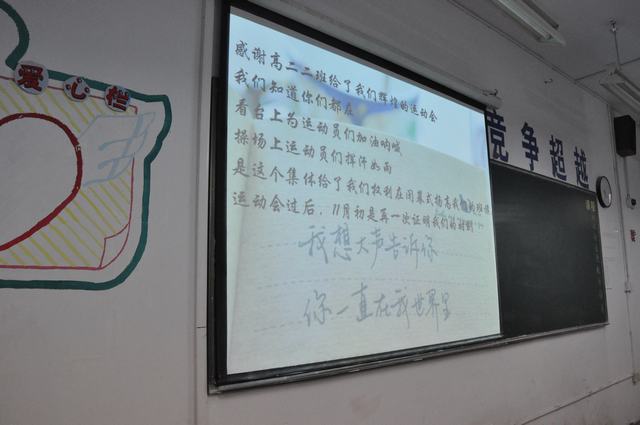 爱心栏
感谢高二二班给了我们辉煌的运动会
我们知道你们都在
看台上为运动员们加油呐喊
操场上运动员们挥汗如雨
是这个集体给了我们权利在闭幕式扬高我们的班旗
运动会过后，11月初是再一次证明我们的时刻
我想大声告诉你
你一直在我世界里
竞争超越